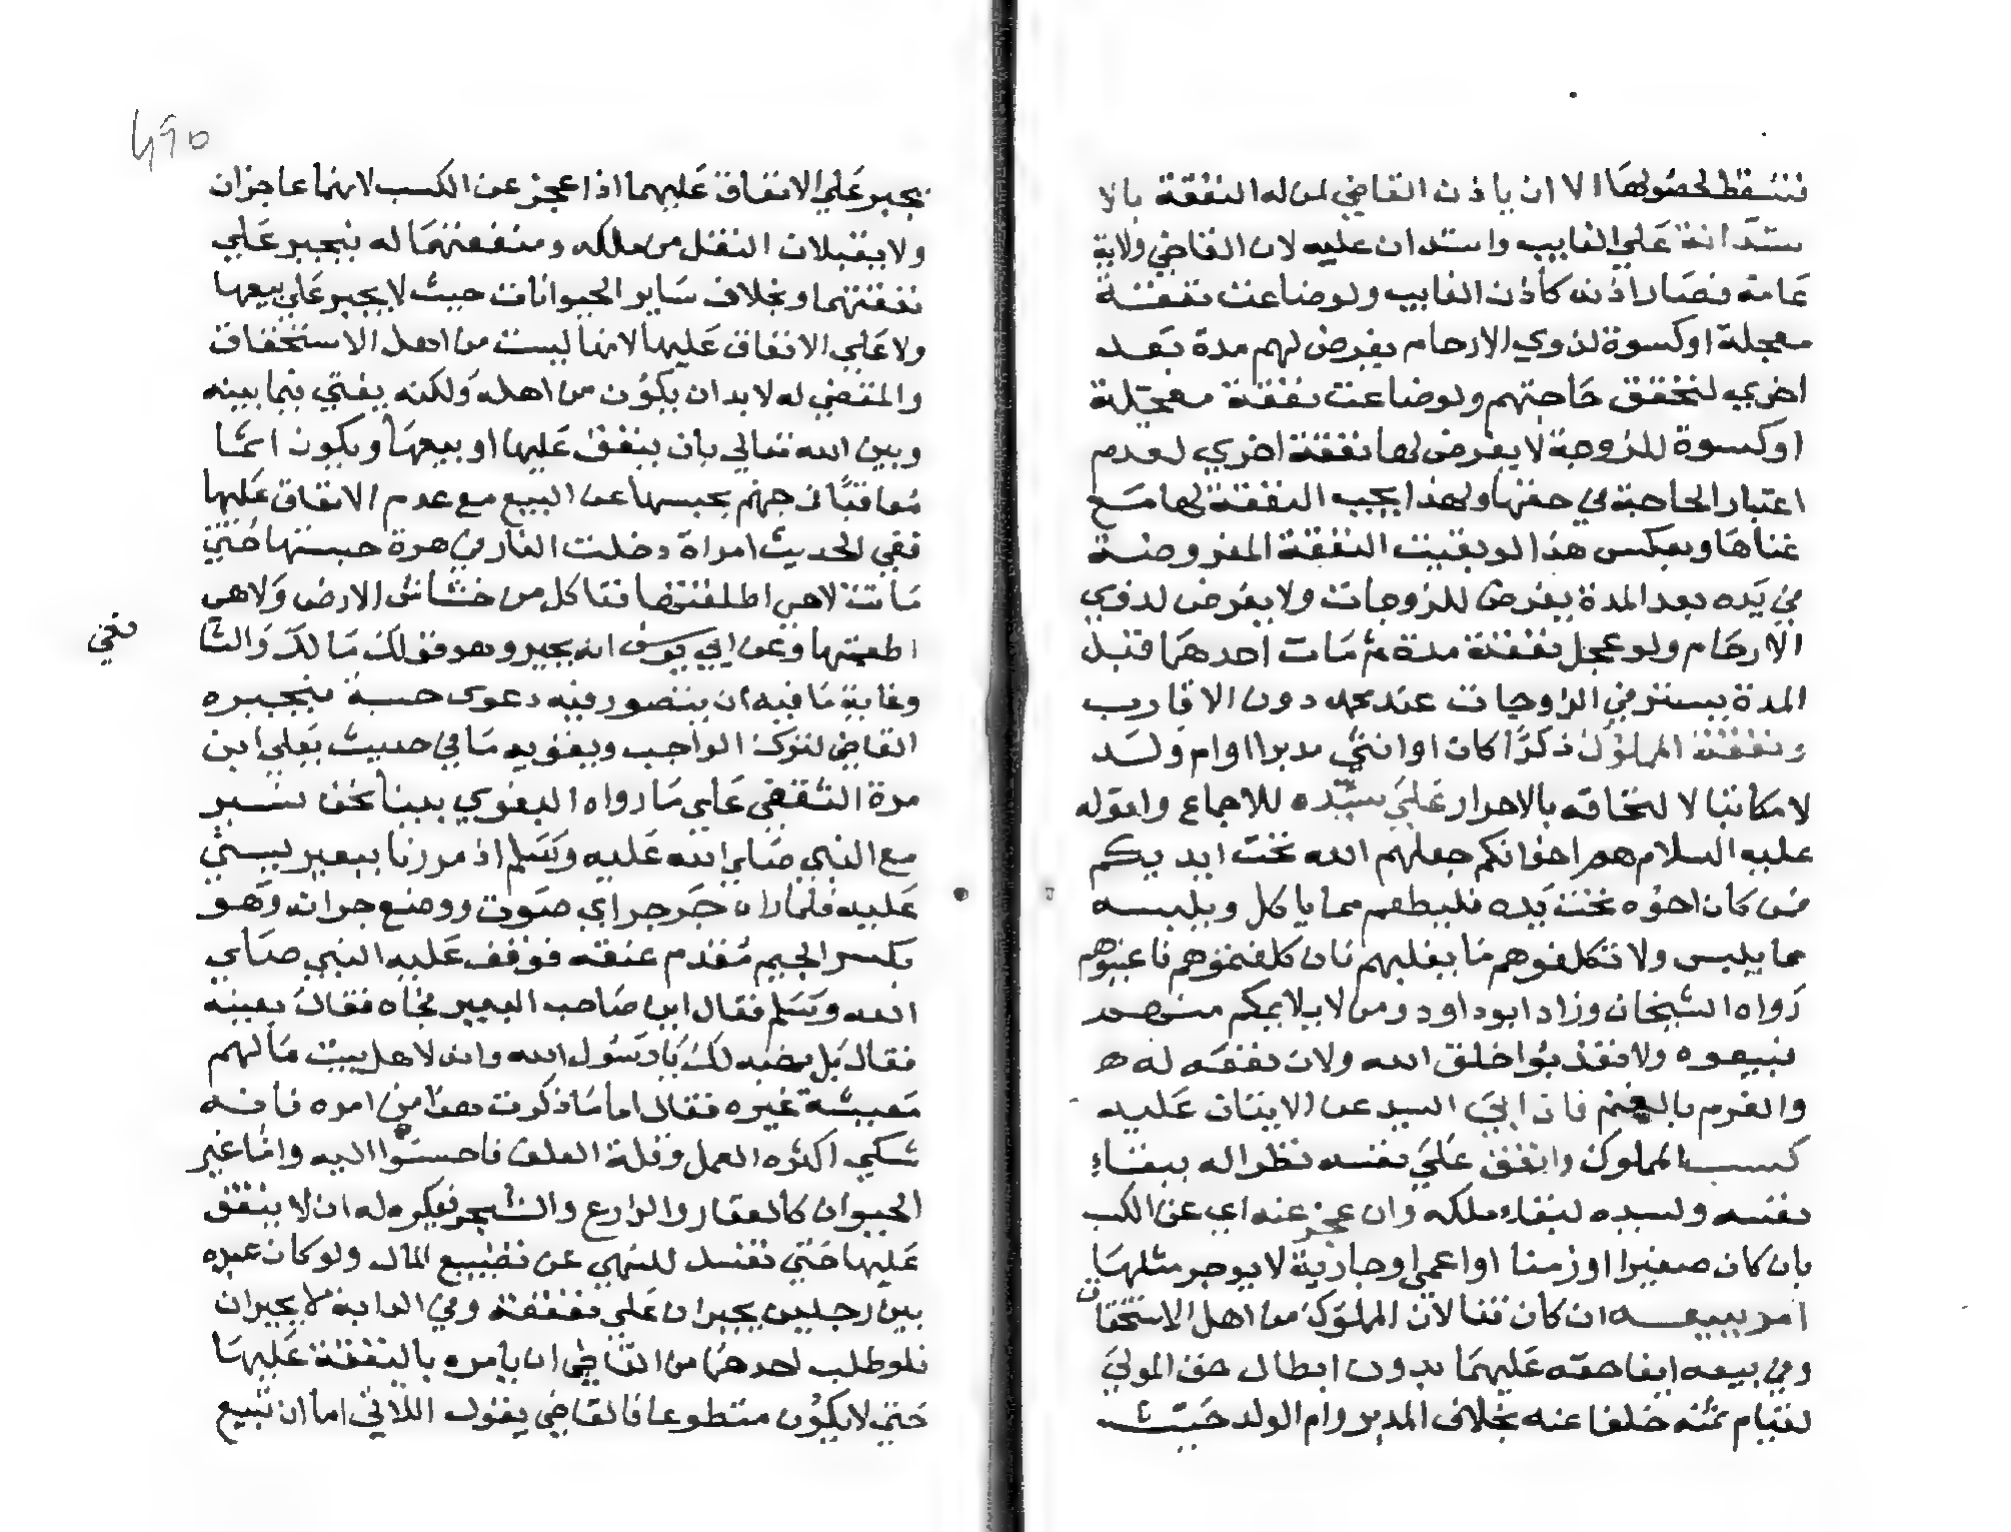 فتسقط لحصولها الا ان ياذن القاضي لمن له النفقة بالا
ستدانة علي الغايب واستدان عليه لان القاضي ولاية
عامة فصار اذنه كاذن الغايب ولو ضاعت نفقة
معجلة اوكسوة لذوي الارحام يفرض لهم مدة بعد
اخري لتحقق حاجتهم ولو ضاعت نفقة معجلة
اوكسوة للزوجة لا يفرض لها نفقة اخري لعدم
اعتبار الحاجة في حقها ولهذا يجب النفقة لها مع
غناها وبعكس هذا لو بقيت النفقة المفروضة
في يده بعد المدة يفرض للزوجات ولا يفرض لذوي
الارحام ولو عجل نفقة مدة ثم مات احدهما قبل
المدة يسترد في الزوجات عند محمد دون الاقارب
ونفقة المملوك ذكرا كان او انثي مدبرا اوام ولد
لا مكاتبا لالتحاقه بالاحرار علي سيده للاجماع ولقوله
عليه السلام هم اخوانكم جعلهم الله تحت ايديكم
فمن كان اخوه تحت يده فليطعمه مما ياكل ويلبسه
مما يلبس ولا تكلفوهم ما يغلبهم فان كلفتموهم فاعينوهم
رواه الشيخان وزاد ابو داود ومن لا يلايمكم منهم
فبيعوه ولا تعذبوا خلق الله ولان نفعه له
والغرم بالغنم فان ابي السيد عن الانفاق عليه
كسب المملوك وانفق علي نفسه نظرا له ببقاء
نفسه ولسيده لبقاء ملكه وان عجز عنه اي عن الكسب
بان كان صغيرا او زمنا او اعمي او جارية لا يوجر مثلها
امر ببيعه ان كان قنا لان المملوك من اهل الاستحقاق
وفي بيعه ايفا حقه عليهما بدون ابطال حق المولي
لقيام ثمنه خلفا عنه بخلاف المدبر وام الولد حيث
٤٩٥
يجبر علي الانفاق عليهما اذا عجز عن الكسب لانهما عاجزان
ولا يقبلان النقل من ملكه ومنفعتهما له فيجبر علي
نفقتهما وبخلاف ساير الحيوانات حيث لا يجبر علي بيعها
ولا علي الانفاق عليها لانها ليست من اهل الاستحقاق
والمقضي له لا بد ان يكون من اهله ولكنه يفتي فيما بينه
وبين الله تعالي بان ينفق عليها او بيعها ويكون اثما
معاقبا في جهنم بحبسها عن البيع مع عدم الانفاق عليها
ففي الحديث امراة دخلت النار في هرة حبستها حتي
ماتت لا هي اطلقتها فتاكل من خشاش الارض ولا هي
اطعمتها وعن ابي يوسف انه يجبر وهو قول مالك والشا
فعي
وغاية ما فيه ان يتصور فيه دعوي حسبة فيجبره
القاضي لترك الواجب ويقويه ما في حديث يعلي ابن
مرة الثقفي علي ما رواه البغوي بينا نحن نسير
مع النبي صلي الله عليه وسلم اذ مررنا ببعير يسني
عليه فلما راه جرجر اي صوت ووضع جرانه وهو
بكسر الجيم مقدم عنقه فوقف عليه النبي صلي
الله وسلم فقال اين صاحب البعير فجاه فقال بعينه
فقال بل نهبه لك يا رسول الله وانه لاهل بيت ما لهم
معيشة غيره فقال اما ما ذكرت هذا من امره فانه
شكي اكثره العمل وقلة العلف فاحسنوا اليه واما غير
الحيوان كالعقار والزارع والشجر فيكره له ان لا ينفق
عليها حتي تفسد للنهي عن تضييع المال ولو كان عبده
بين رجلين يجبران علي نفقته وفي الدابة لا يجبران
فلو طلب احدهما من القاضي ان يامره بالنفقة عليها
حتي لا يكون متطوعا فالقاضي يقول اللاتي اما ان تبيع